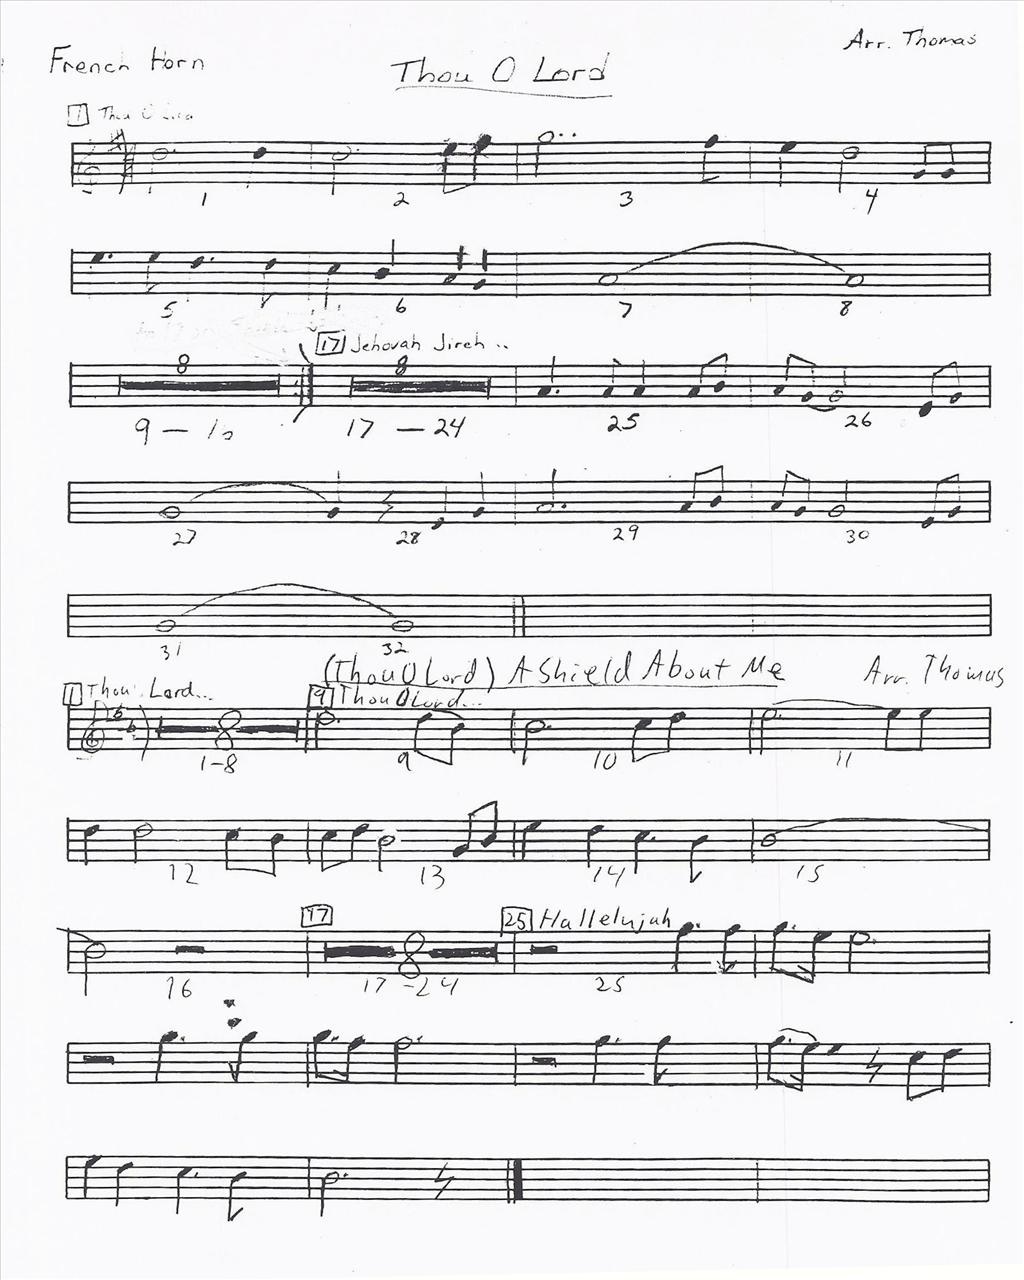 French Horn
Thou O Lord
Arr. Thomas
1 Thou O Lord
1 2 3 4
5 6 7 8
17 Jehovah Jireh..
8 8
9 - 16 17 - 24 25 26
27 28 29 30
31 32
(Thou O Lord) A Shield About Me Arr. Thomas
1 Thou Lord... 9 Thou O Lord...
8
1-8 9 10 11
12 13 14 15
17 25 Hallelujah
8
16 17-24 25